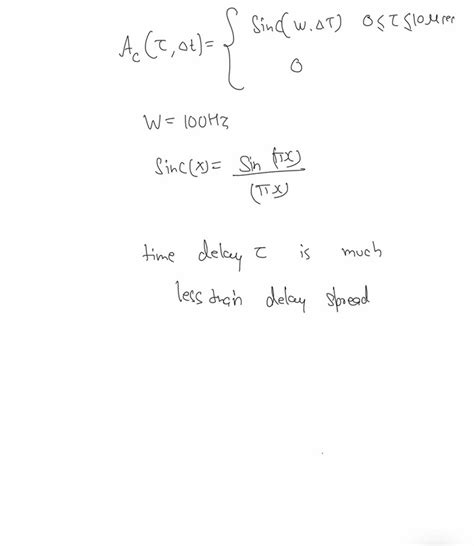 A_c(τ, Δt) = { Sinc(W.ΔT) 0 ≤ τ ≤ 10 μsec
0
W = 100Hz
Sinc(x) = Sin(πx) / (πx)
time delay τ is much
less than delay spread